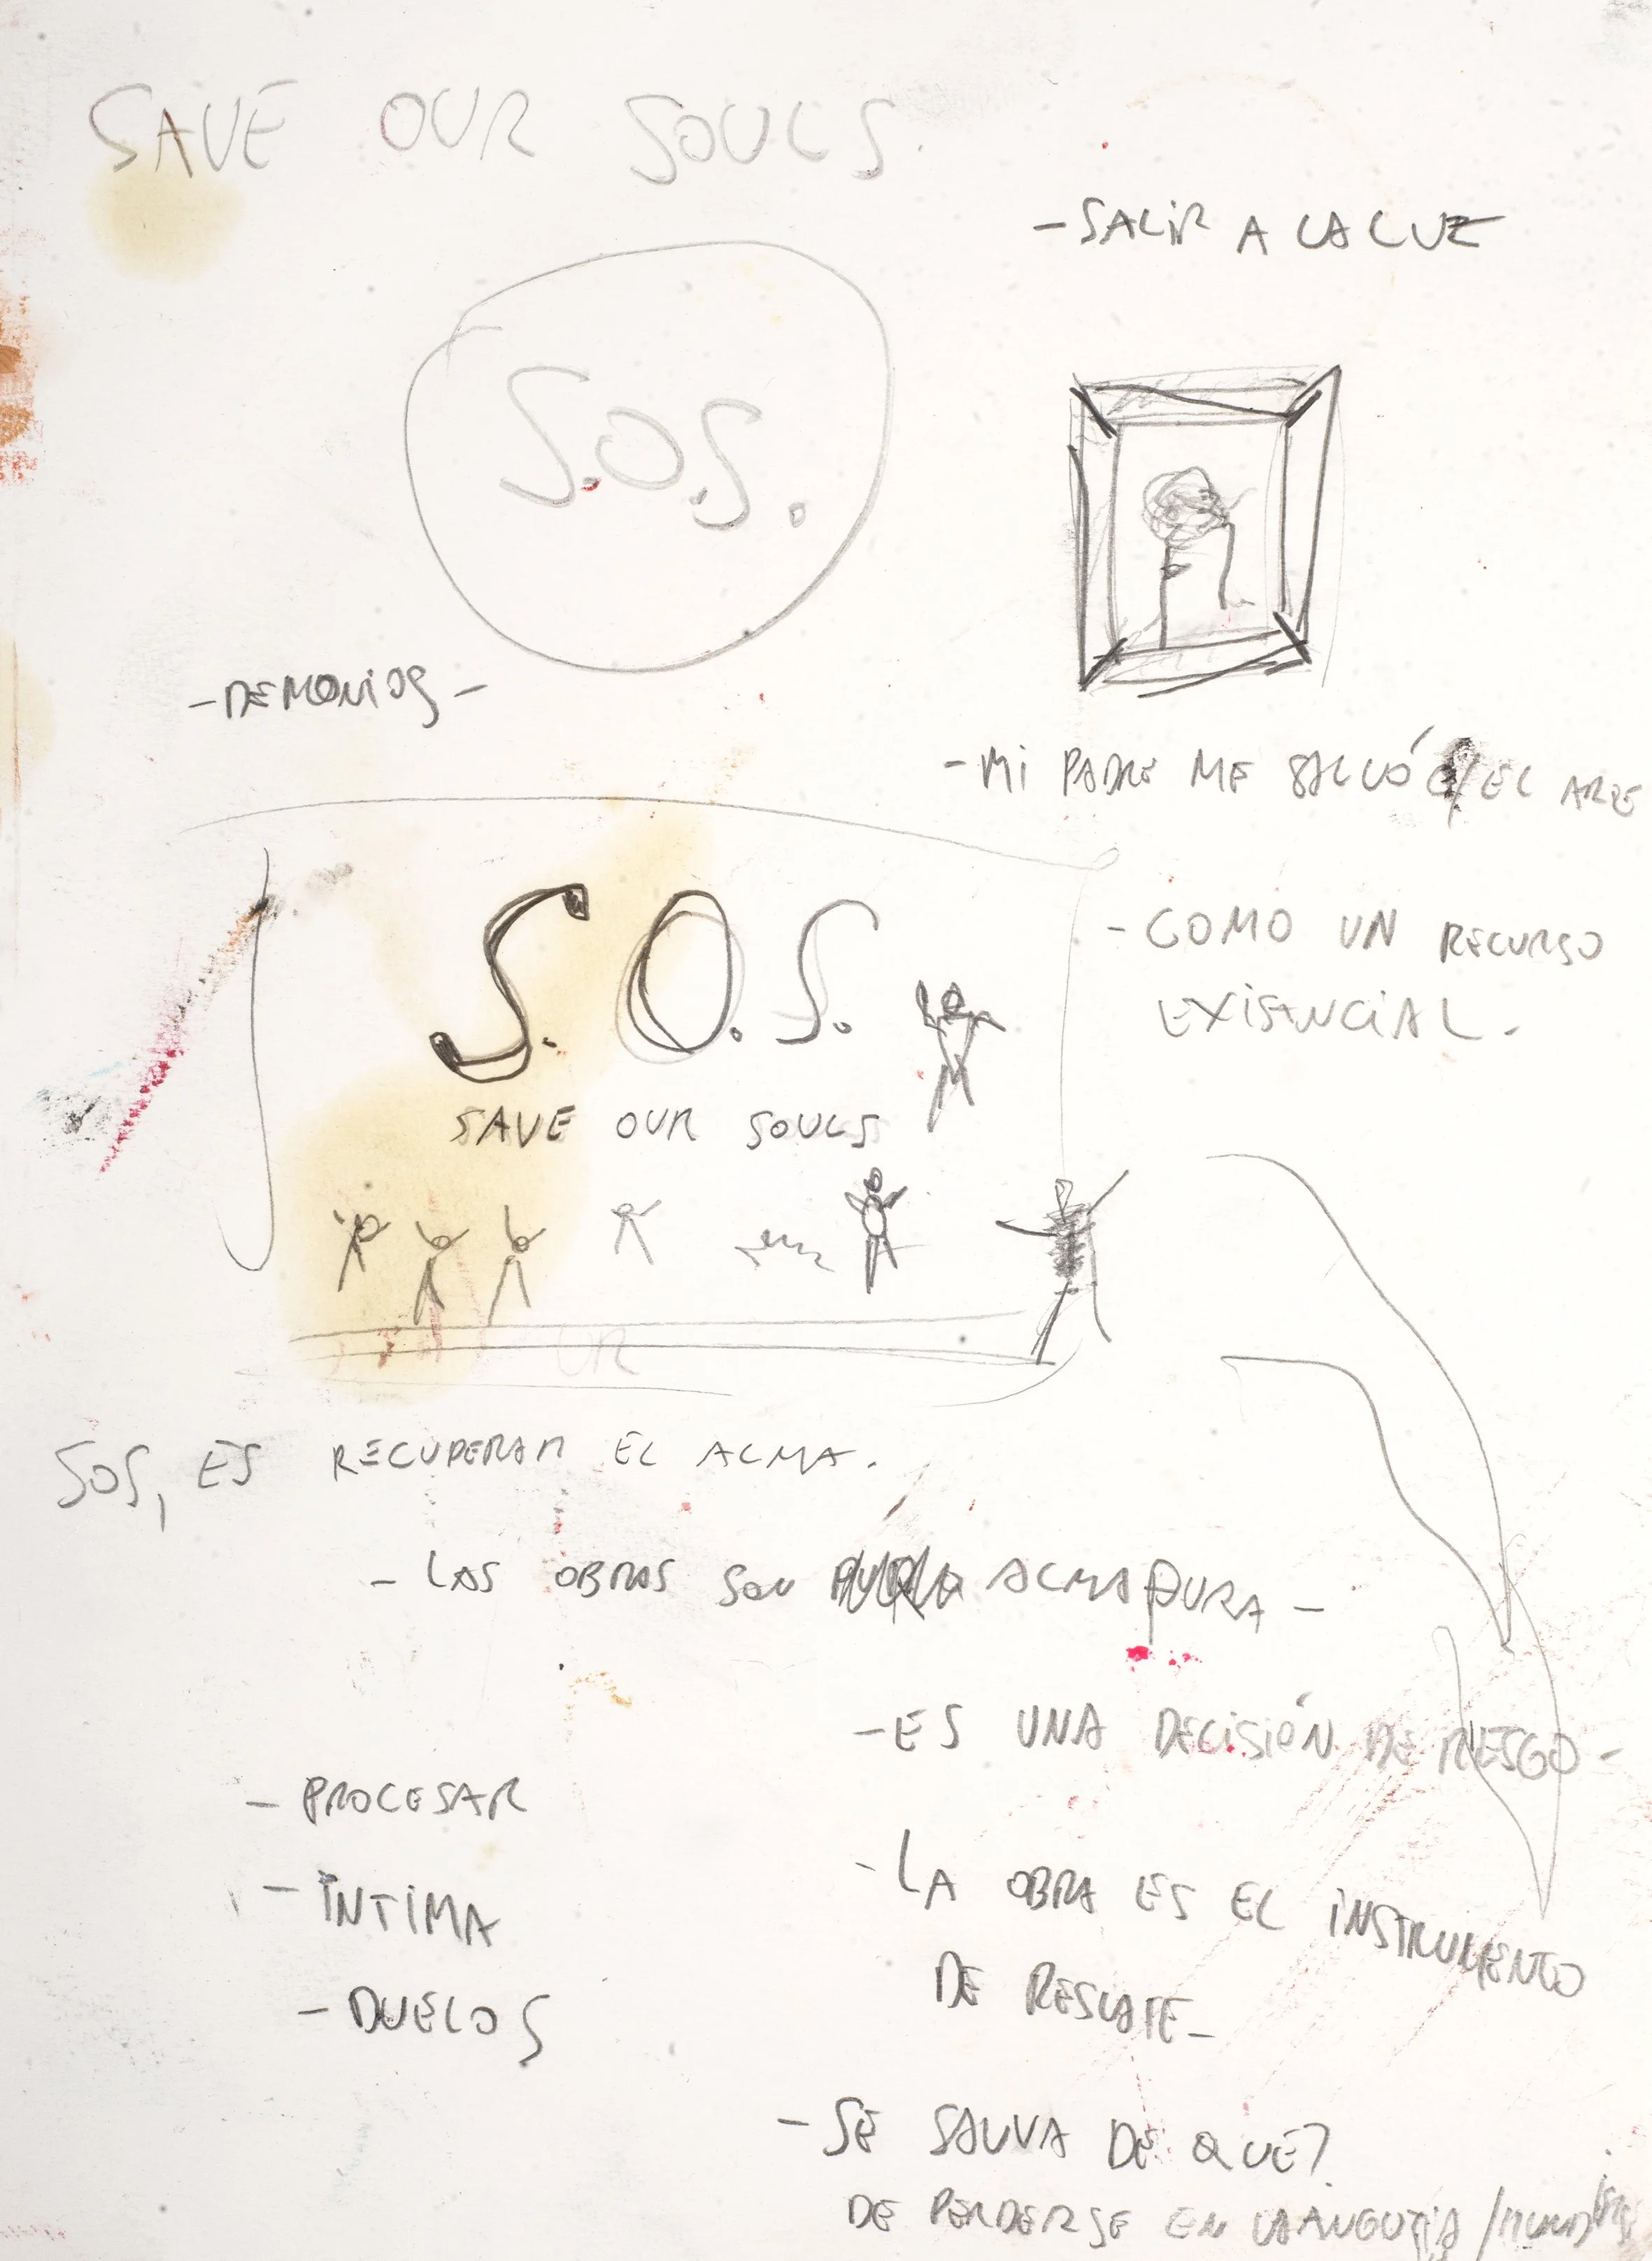 SAVE OUR SOULS.
- SALIR A LA LUZ
S.O.S.
- DEMONIOS -
- MI PADRE ME SALVÓ EL ARTE
S.O.S.
- COMO UN RECURSO
EXISTANCIAL.
SAVE OUR SOULS
SOS, ES RECUPERAR EL ALMA.
- LAS OBRAS SON ALMA PURA -
- ES UNA DECISIÓN DE RIESGO -
- PROCESAR
- LA OBRA ES EL INSTRUMENTO
DE RESCATE -
- INTIMA
- DUELOS
- SE SALVA DE QUE?
DE PERDERSE EN LA ANGUSTIA /